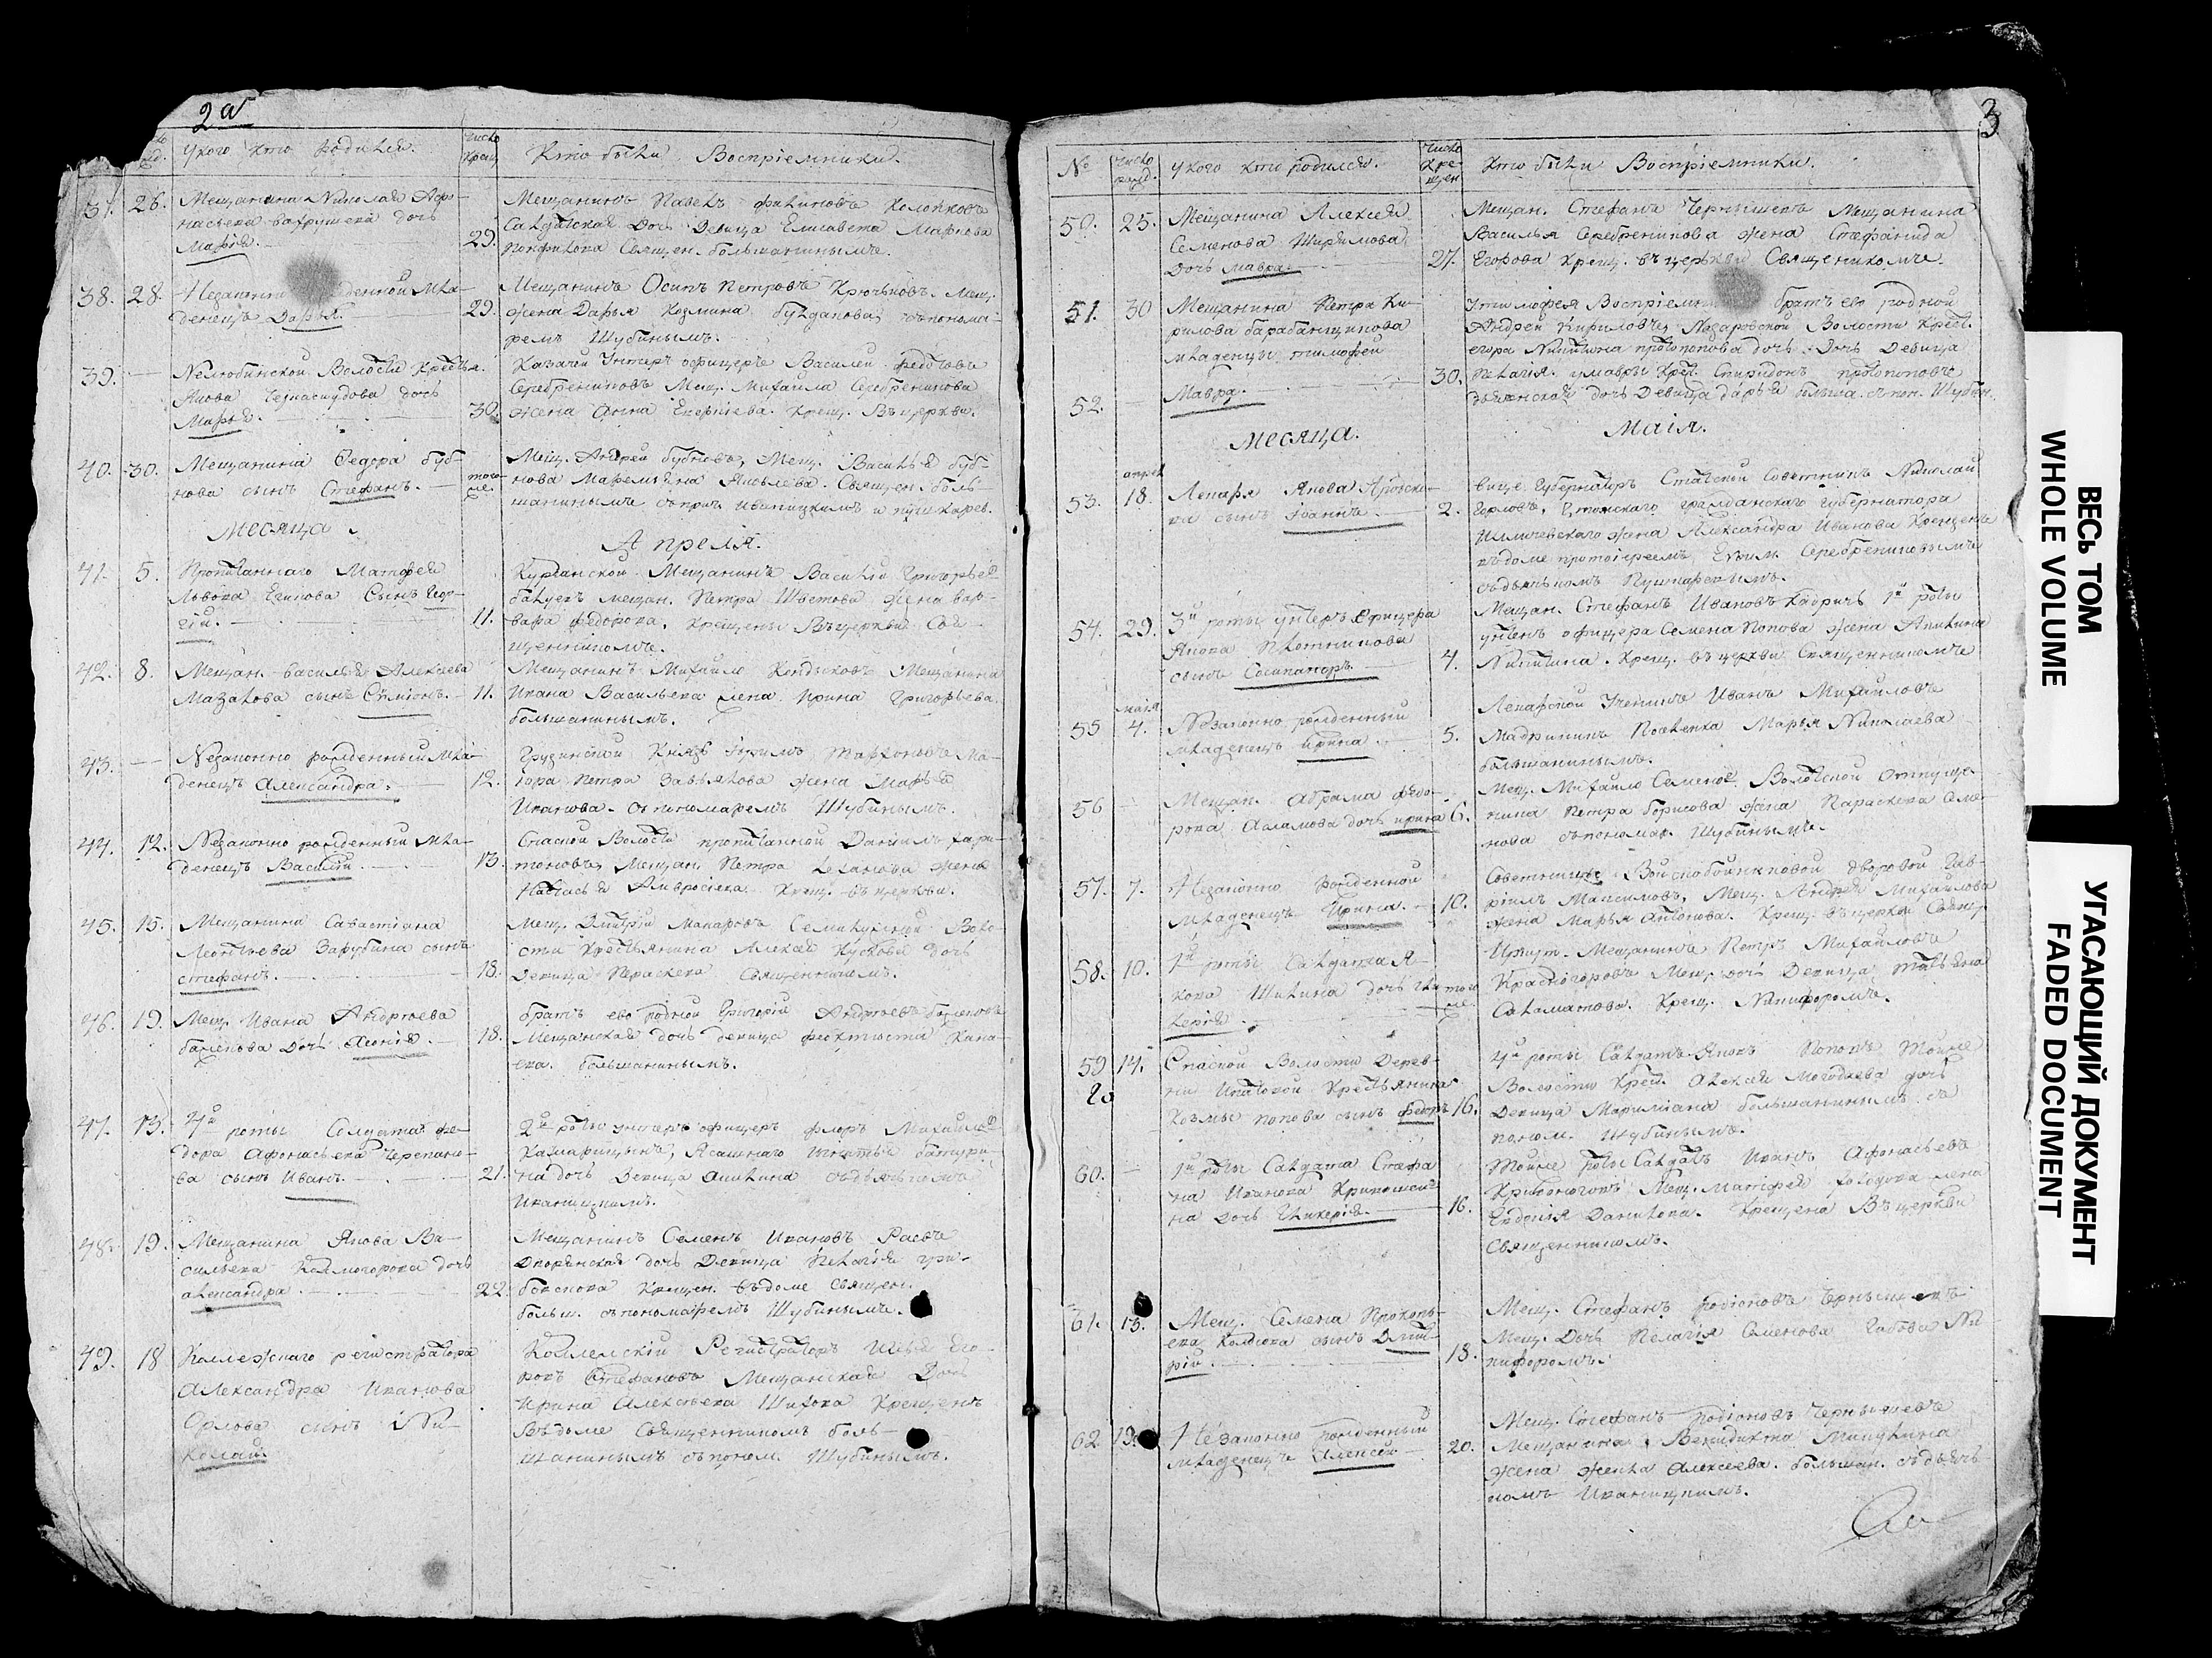 2а
У кого кто родился.
число крещ.
Кто были Восприемники.
37. 26. Мещанина Николая Афо-
насьева Вахрушева дочь
Марія.
29.
Мещанинъ Павелъ Филиповъ
Салдатская Дочь Девица Елисавета Маркова
Священ. большанинымъ.
38. 28. Незаконно мла-
денецъ Дарья.
29.
Мещанинъ Осипъ Петровъ Крючковъ. Мещ.
жена Дарья Козмина съпонома-
ремъ Шубинымъ.
39. — Нелюбинской Волости Кресть.
Якова дочь
Марья.
30.
Казачей Унтеръ офицеръ Василей Федотовъ
Серебрениковъ Мещ. Михайла Серебреникова
жена Анна Крещ. Въ церкви.
40. 30. Мещанина Федора Буб-
нова сынъ Стефанъ.
того же.
Мещ. Андрей Бубновъ, Мещ. Василья Буб-
нова Маремьяна Яковлева. Священ. боль-
шанинымъ Иваницкимъ и пушкарев.
Месяца
Апреля.
41. 5. Матфея
Львова сынъ Геор-
гій.
11.
Мещанинъ Василій Григорьев
мещан. Петра жена Вар-
вара Федорова. Крещены Въ церкви Свя-
щенникомъ.
42. 8. Мещан. Василья Алексеева
Мазалова сынъ Сѵмеонъ.
11.
Мещанинъ Михайло Мещанина
Ивана Васильева жена Ирина Григорьева.
большанинымъ.
43. — Незаконно рожденный мла-
денецъ Александра.
12.
Грузинской Князь Ма-
іора Петра Завьялова жена Марья
Иванова. съ пономаремъ Шубинымъ.
44. 12. Незаконно рожденный мла-
денецъ Василій.
13.
Спаской Волости Даніилъ Хари-
тоновъ, Мещан. Петра жена
Настасья Амвросіева. Крещ. въ церкви.
45. 15. Мещанина Савастіана
Леонтьева Зарубина сынъ
Стефанъ.
18.
Мещ. Дмитрій Макаровъ Семилужной Воло-
сти Крестьянина Алексея дочь
Девица Параскева Священникомъ.
46. 19. Мещ. Ивана Андреева
Баженова дочь Ксенія.
18.
братъ ево родной Григорій Андреевъ Баженовъ
Мещанская дочь девица
большанинымъ.
47. 13. 4й роты Солдата Фе-
дора Афонасьева Черепано-
ва сынъ Иванъ.
21.
2й роты унтеръ офицеръ Флоръ Михайлов
Девица Акилина съ дьячкомъ
Иваницкимъ.
48. 19. Мещанина Якова Ва-
сильева Колмогорова дочь
Александра.
22.
Мещанинъ Семенъ Ивановъ
Дворянская дочь Девица Пелагія
Крещен. въ доме Священ.
больш. съ пономаремъ Шубинымъ.
49. 18 Коллежскаго регистратора
Александра Иванова
Орлова сынъ Ни-
колай.
Коллежскій Регистраторъ Илья Его-
ровъ Стефановъ Мещанская Дочь
Ирина Алексеева Крещенъ
Въ доме Священникомъ боль-
шанинымъ съ поном. Шубинымъ.
3
№ число рожд. У кого кто родился. число крещен Кто были Восприемники.
50. 25. Мещанина Алексея
Семенова Ширямова
Дочь Мавра.
27.
Мещан. Стефанъ Чернышевъ Мещанина
Василья Серебреникова жена Стефанида
Егорова Крещ. въ церкви Священикомъ.
51. 30 Мещанина Петра Ки-
рилова барабанщикова
младенцы тимофей
52. Мавра.
30.
У тимофея братъ ево родной
Андрей Кириловъ, Назаровской Волости Крест.
Егора Никитина протопопова дочь Девица
Пелагія. у мавры Крес. Спиридонъ протопоповъ
дочь Девица Дарья больша. съ пон. Шубин.
Месяца.
Маія.
апреля
53. 18. Лекаря Якова
сынъ Іоаннъ.
2.
Вице Губернаторъ Статской Советникъ Николай
Горловъ, томскаго гражданскаго губернатора
Илличевскаго жена Александра Иванова Крещенъ
въ доме протоіереемъ Серебрениковымъ
съ дьячкомъ Пушкаревымъ.
54. 29. 3й роты унтеръ Офицера
Якова Плотникова
сынъ Сосипаторъ.
4.
Мещан. Стефанъ Ивановъ 1й роты
унтеръ офицера Семена Попова жена Акилина
Никитина. Крещ. въ церкви Священникомъ
маія
55 4. Незаконно рожденный
младенецъ Ирина.
5.
Лекарской Ученикъ Иванъ Михайловъ
Марья Николаева
большанинымъ.
56 — Мещан. Абрама Федо-
рова дочь Ирина
6.
Мещ. Михайло Семенов
Петра Борисова жена Параскева Семе-
нова съ пономар. Шубинымъ.
57. 7. Незаконно рожденной
младенецъ Ирина.
10.
дворовой Гав-
ріилъ Максимовъ, Мещ. Андрея Михайлова
жена Марья Антонова. Крещ. въ церкви Священ.
58. 10. 1й роты Салдата Я-
кова дочь Гли-
керія.
того же
Иркут. Мещанинъ Петръ Михайловъ
Красногоровъ Мещ. дочь Девица Татьяна
Саламатова. Крещ. Никифоромъ.
59 14. Спаской Волости Дерев-
ни Крестьянина
Козмы попова сынъ Федоръ
16.
4й роты Салдатъ Яковъ Поповъ Тойже
Волости Крес. Алексея дочь
Девица большанинымъ съ
поном. Шубинымъ.
60. — 1й роты Салдата Стефа-
на Иванова
на дочь Гликерія.
16.
Тойже роты Салдатъ Иванъ Афонасьевъ
Кривоноговъ Мещ. Матфея жена
Евдокія Данилова. Крещена Въ церкви
Священникомъ.
61. 13. Мещ. Семена Прокопь-
ева сынъ Дмит-
рій.
18.
Мещ. Стефанъ Родіоновъ Чернышевъ
Мещ. Дочь Пелагія Семенова Ни-
кифоромъ.
62 19. Незаконно рожденный
младенецъ Алексей
20.
Мещ. Стефанъ Родіоновъ Чернышевъ
Мещанина Венидикта
жена Алексеева. большан. съ дьячь-
комъ Иваницкимъ.
ВЕСЬ ТОМ
WHOLE VOLUME
УГАСАЮЩИЙ ДОКУМЕНТ
FADED DOCUMENT